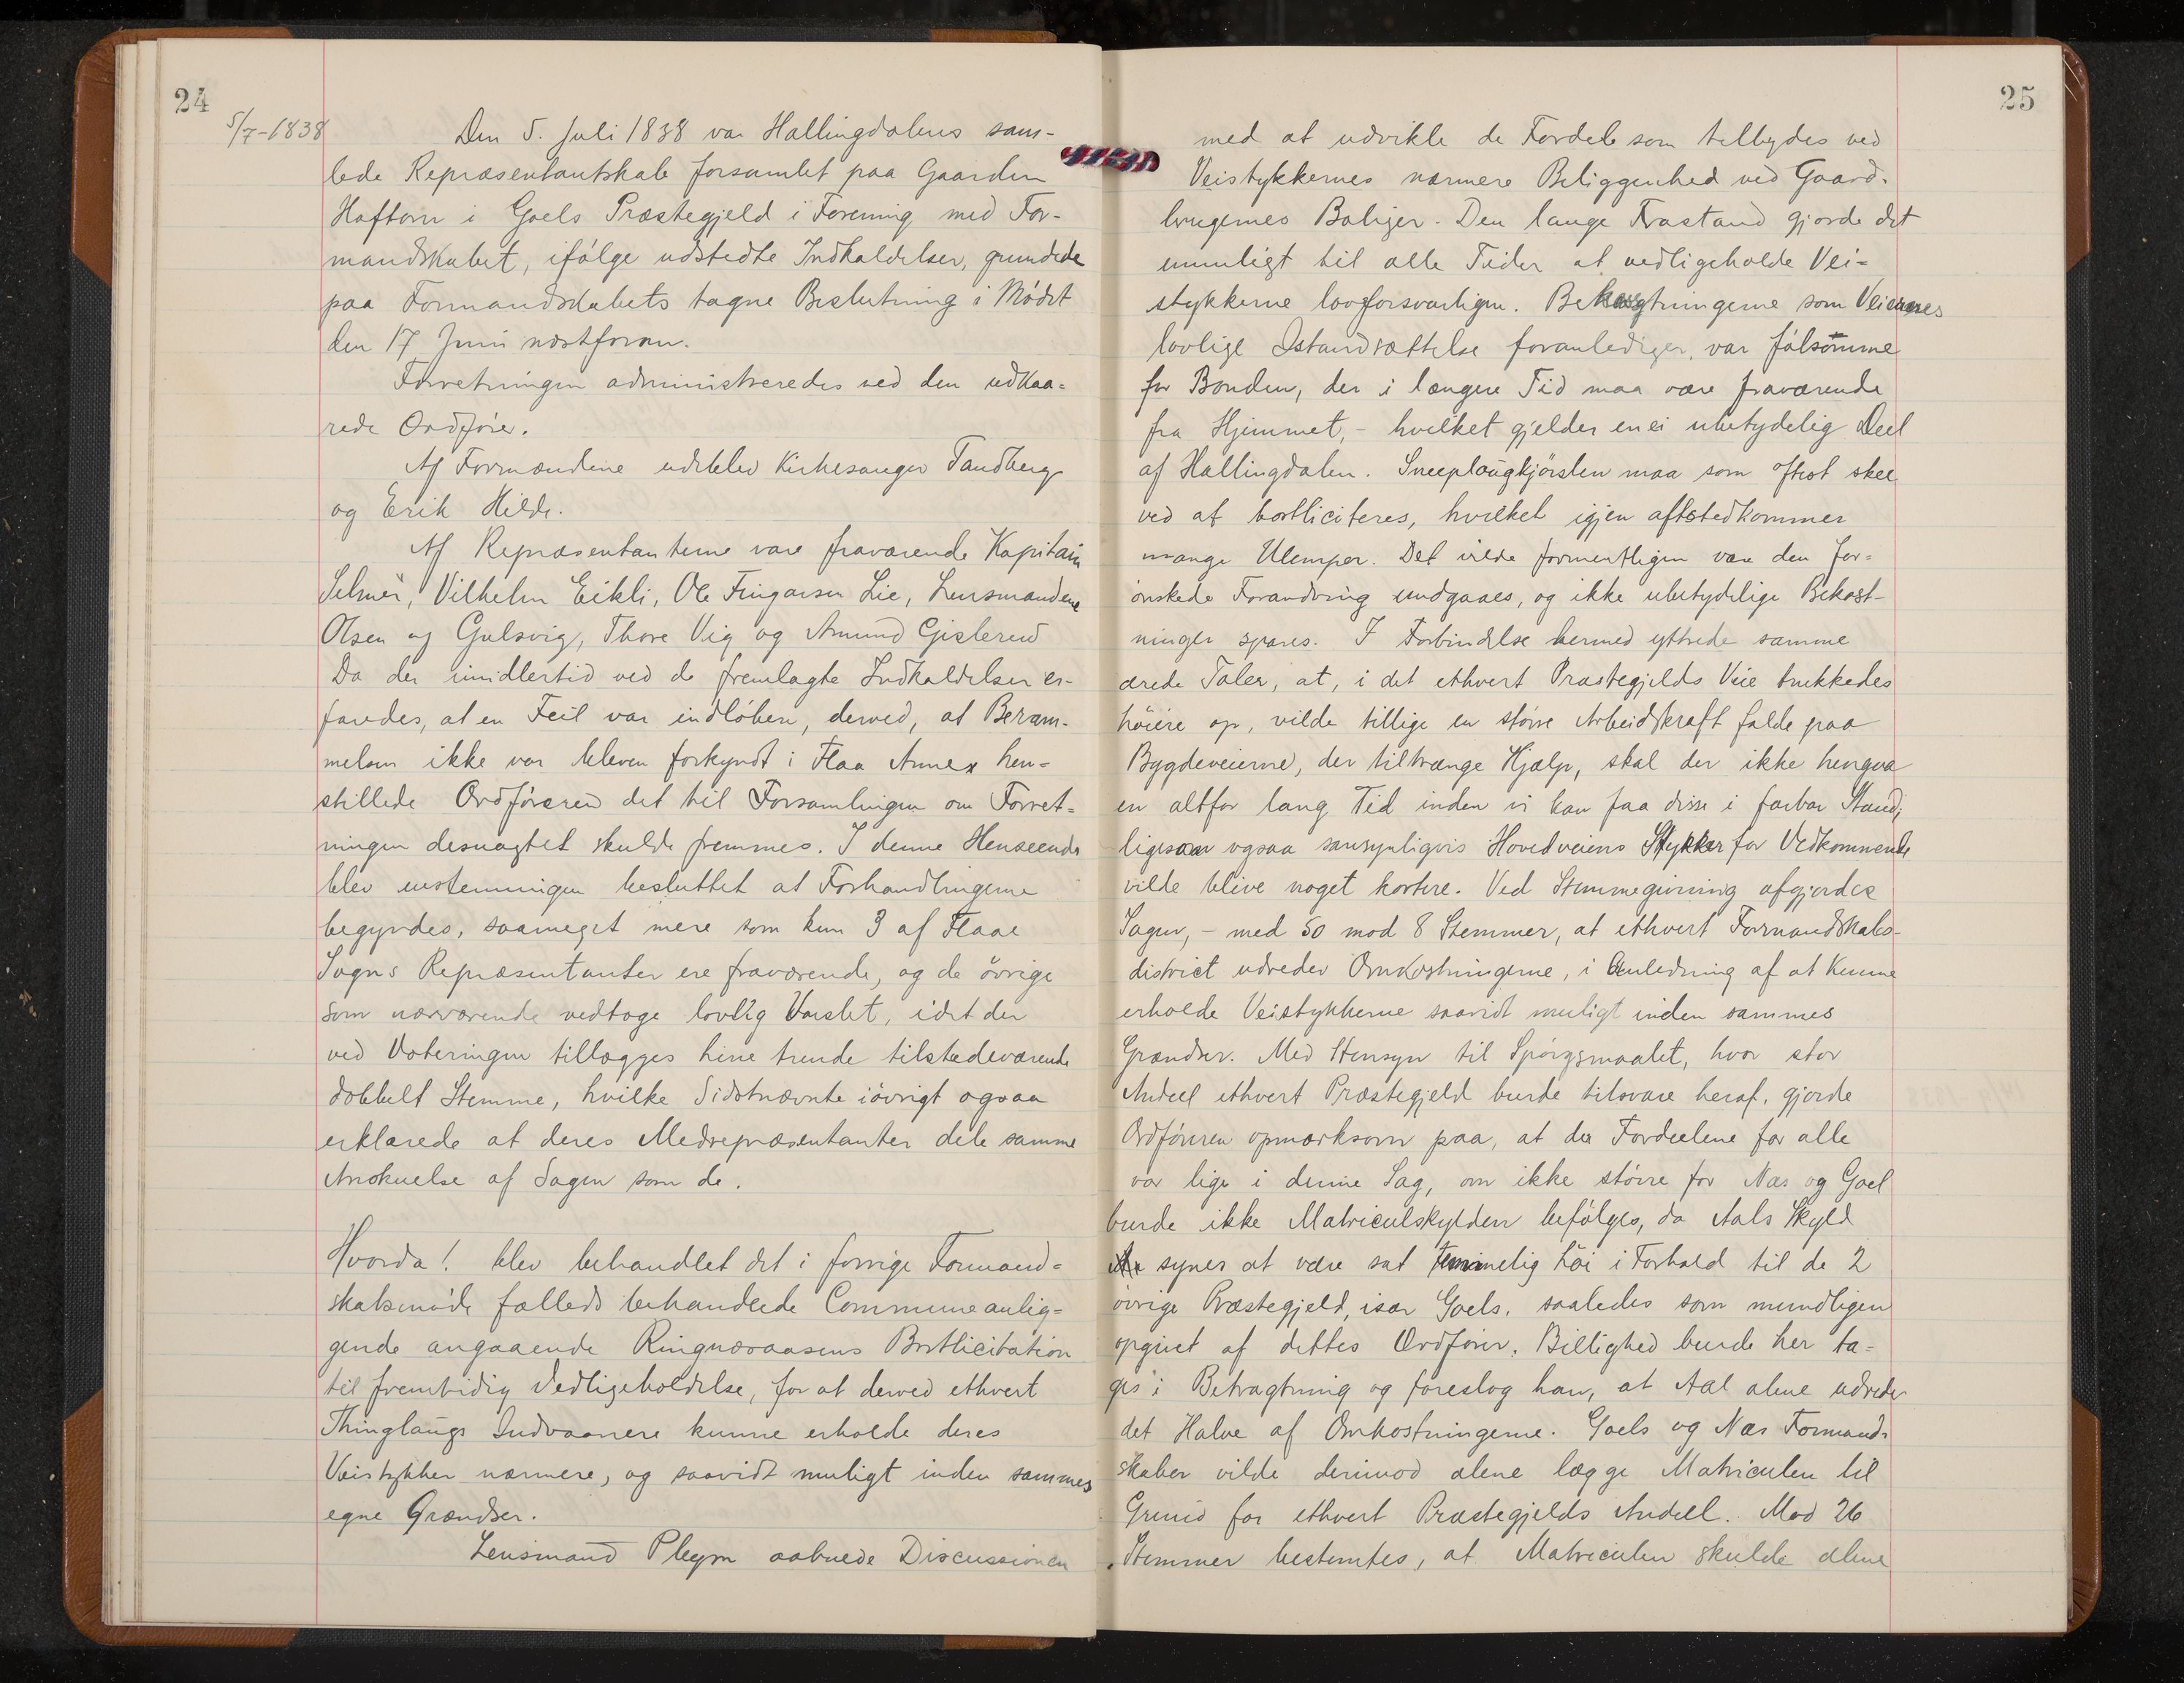 24
5/7-1838
Den 5. Juli 1838 var Hallingdalens sam-
lede Repræsentantskab forsamlet paa Gaarden
Haftorn i Goels Præstegjeld i Forening med For-
mandskabet, ifølge udstedte Indkaldelser, grundede
paa Formandsdabets tagne Beslutning i Mødet
den 17 Juni næstforan.
Forretningen administreredes ved den udkaa-
rede Ordfører.
Af Formændene udeblev Kirkesanger Tandberg
og Erik Hilde.
Af Repræsentanterne vare fraværende Kapitain
Selmer, Vilhelm Eikli, Ole Fingarsen Lie, Lensmandene
Olsen og Gulsvig, Thore Vig og Amund Gislerud
Da der imidlertid ved de fremlagte Indkaldelser er-
faredes, at en Feil var indløben, derved, at Beram-
melsen ikke var bleven forkyndt i Flaa Annex hen-
stillede Ordføreren det til Forsamlingen om Forret-
ningen desuagtet skulde fremmes. I denne Henseende
blev enstemmigen besluttet at Forhandlingerne
begyndes, saameget mere som kun 3 af Flaae
Sogns Repræsentanter ere fraværende, og de øvrige
som nærværende vedtoge lovlig Varslet, idet der
ved Voteringen tillægges hine trende tilstedeværende
dobbelt Stemme, hvilke Sidstnævnte iøvrigt ogsaa
erklærede at deres Medrepræsentanter dele samme
Anskuelse af Sagen som de.
Hvorda! blev behandlet det i forrige Formand-
skabsmøde fælleds behandlede Communeanlig-
gende angaaende Ringnæsaasens Bortlicitation
til fremtidig Vedligeholdelse, for at derved ethvert
Thinglaugs Indvaanere kunne erholde deres
Veistykker nærmere, og saavidt muligt inden sammes
egne Grændser.
Lensmand Pleym aabnede Discussionen
25
med at udvikle de Fordele som tilbydes ved
Veistykkernes nærmere Beliggenhed ved Gaard-
brugernes Boliger. Den lange Frastand gjorde det
umuligt til alle Tider at vedligeholde Vei-
stykkerne lovforsvarligen. som Veienes
lovlige Istandsættelse foranlediger, var følsomme
for Bonden, der i længere Tid maa være fraværende
fra Hjemmet, - hvilket gjelder en ei ubetydelig Deel
af Hallingdalen. Sneeplougkjørslen maa som oftest skee
ved at bortliciteres, hvilket igjen afstedkommer
mange Ulemper. Det vilde formentligen være den for-
ønskede Forandring undgaaes, og ikke ubetydelige Bekost-
ninger spares. I Forbindelse hermed yttrede samme
ærede Taler, at, i det ethvert Præstegjelds Veie trækkedes
høiere op, vilde tillige en større Arbeidskraft falde paa
Bygdeveierne, der tiltrænge Hjælp, skal der ikke hengaa
en altfor lang Tid inden vi kan faa disse i farbar Stand;
ligesaa ogsaa sansynligvis Hovedveiens Stykker for Vedkommende
vilde blive noget kortere. Ved Stemmegivning afgjordes
Sagen, - med 50 mod 8 Stemmer, at ethvert Formandskabs-
district udreder Omkostningerne, i Anledning af at kunne
erholde Veistykkerne saavidt muligt inden sammes
Grændser. Med Hensyn til Spørgsmaalet, hvor stor
Andeel ethvert Præstegjeld burde tilsvare heraf, gjorde
Ordføreren opmærksom paa, at da Fordelene for alle
var lige i denne Sag, om ikke større for Næs og Goel
burde ikke Matriculskylden befølges, da Aals Skyld
synes at være sat temmelig høi i Forhold til de 2
øvrige Præstegjeld, især Goels, saaledes som mundligen
opgivet af dettes Ordfører. Billighed burde her ta-
ges i Betragtning og foreslog han, at Aal alene udreder
det Halve af Omkostningerne. Goels og Næs Formand-
skaber vilde derimod alene lægge Matriculen til
Grund for ethvert Præstegjelds Andeel. Mod 26
Stemmer bestemtes, at Matriculen skulde alene